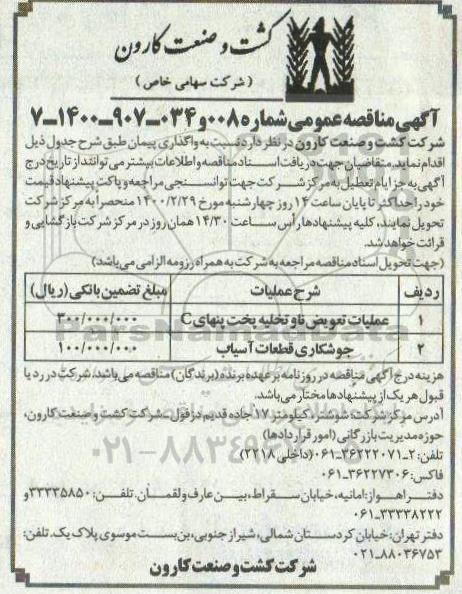 کشت و صنعت کارون
(شرکت سهامی خاص)
آگهی مناقصه عمومی شماره ۰۰۸ و ۰۳۴_۹۰۷_۱۴۰۰_۷
شرکت کشت و صنعت کارون در نظر دارد نسبت به واگذاری پیمان طبق شرح جدول ذیل
اقدام نماید. متقاضیان جهت دریافت اسناد مناقصه و اطلاعات بیشتر می توانند از تاریخ درج
آگهی به جز ایام تعطیل به مرکز شرکت جهت توانسنجی مراجعه و پاکت پیشنهاد قیمت
خود را حداکثر تا پایان ساعت ۱۴ روز چهارشنبه مورخ ۱۴۰۰/۲/۲۹ منحصرا به مرکز شرکت
تحویل نمایند، کلیه پیشنهادها راس ساعت ۱۴/۳۰ همان روز در مرکز شرکت بازگشایی و
قرائت خواهد شد.
(جهت تحویل اسناد مناقصه مراجعه به شرکت به همراه رزومه الزامی می باشد)
ردیف شرح عملیات مبلغ تضمین بانکی (ریال)
۱ عملیات تعویض ناو تخلیه پخت پنهای C ۳۰۰/۰۰۰/۰۰۰
۲ جوشکاری قطعات آسیاب ۱۰۰/۰۰۰/۰۰۰
هزینه درج آگهی مناقصه در روزنامه بر عهده برنده (برندگان) مناقصه می باشد. شرکت در رد یا
قبول هر یک از پیشنهادها مختار می باشد.
آدرس مرکز شرکت: شوشتر، کیلومتر ۱۷ جاده قدیم دزفول _ شرکت کشت و صنعت کارون،
حوزه مدیریت بازرگانی (امور قراردادها)
تلفن: ۲_۳۶۲۲۲۰۷۱_۰۶۱ (داخلی ۲۲۱۸)
فاکس: ۳۶۲۲۷۳۰۶_۰۶۱
دفتر اهواز: امانیه، خیابان سقراط، بین عارف و لقمان. تلفن: ۳۳۳۳۵۸۵۰ و
۳۳۳۳۸۲۲۲_۰۶۱
دفتر تهران: خیابان کردستان شمالی، شیراز جنوبی، بن بست موسوی پلاک یک. تلفن:
۸۸۰۳۶۷۵۳_۰۲۱
شرکت کشت و صنعت کارون
ParsNamadData